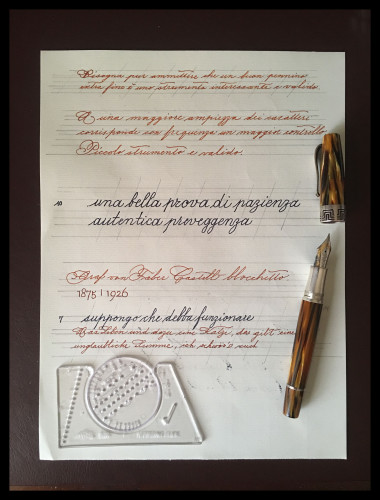 Bisogna pur ammettere che un buon pennino
extra fino è uno strumento interessante e valido
A una maggiore ampiezza dei caratteri
corrisponde con frequenza un maggior controllo
Piccolo strumento e valido.
10 una bella prova di pazienza
autentica preveggenza
Graf von Faber Castell blocchetto
1875 | 1926
7 suppongo che debba funzionare
Leben und dazu eine Katze, das gibt eine
unglaubliche Summe, ich schwör's euch